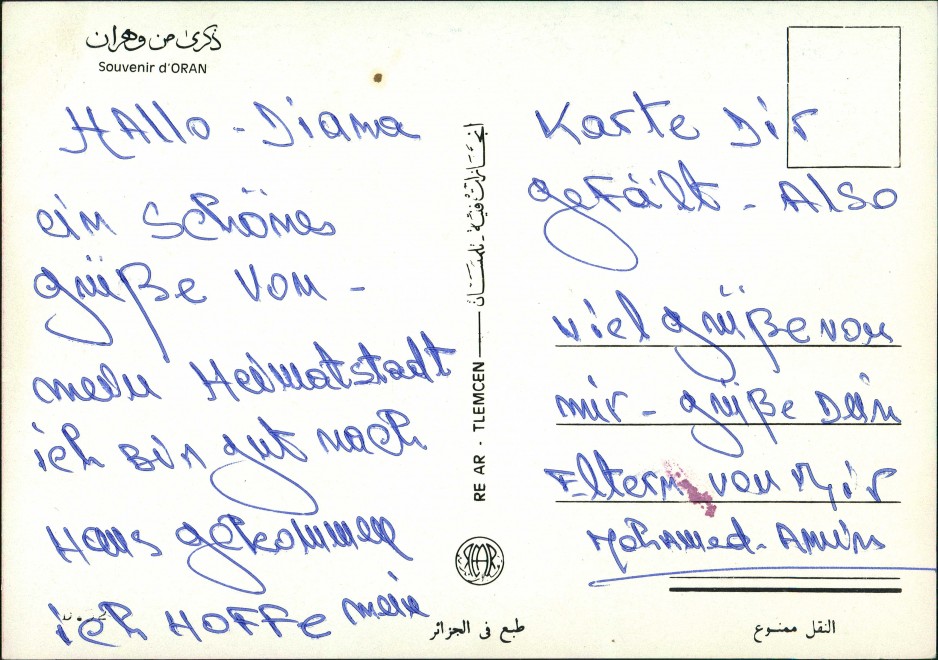 ذكرى من وهران
Souvenir d'ORAN
HAllo - Diana
ein schönes
grüße von -
mein Heimatstadt
ich Bin gut nach
Haus gekommen
ich HOFFe mein
Karte Dir
geFält - Also
viel grüße von
mir - grüße Dein
Eltern von Mir
Mohamed - Amin
RE AR - TLEMCEN
طبع في الجزائر
النقل ممنوع